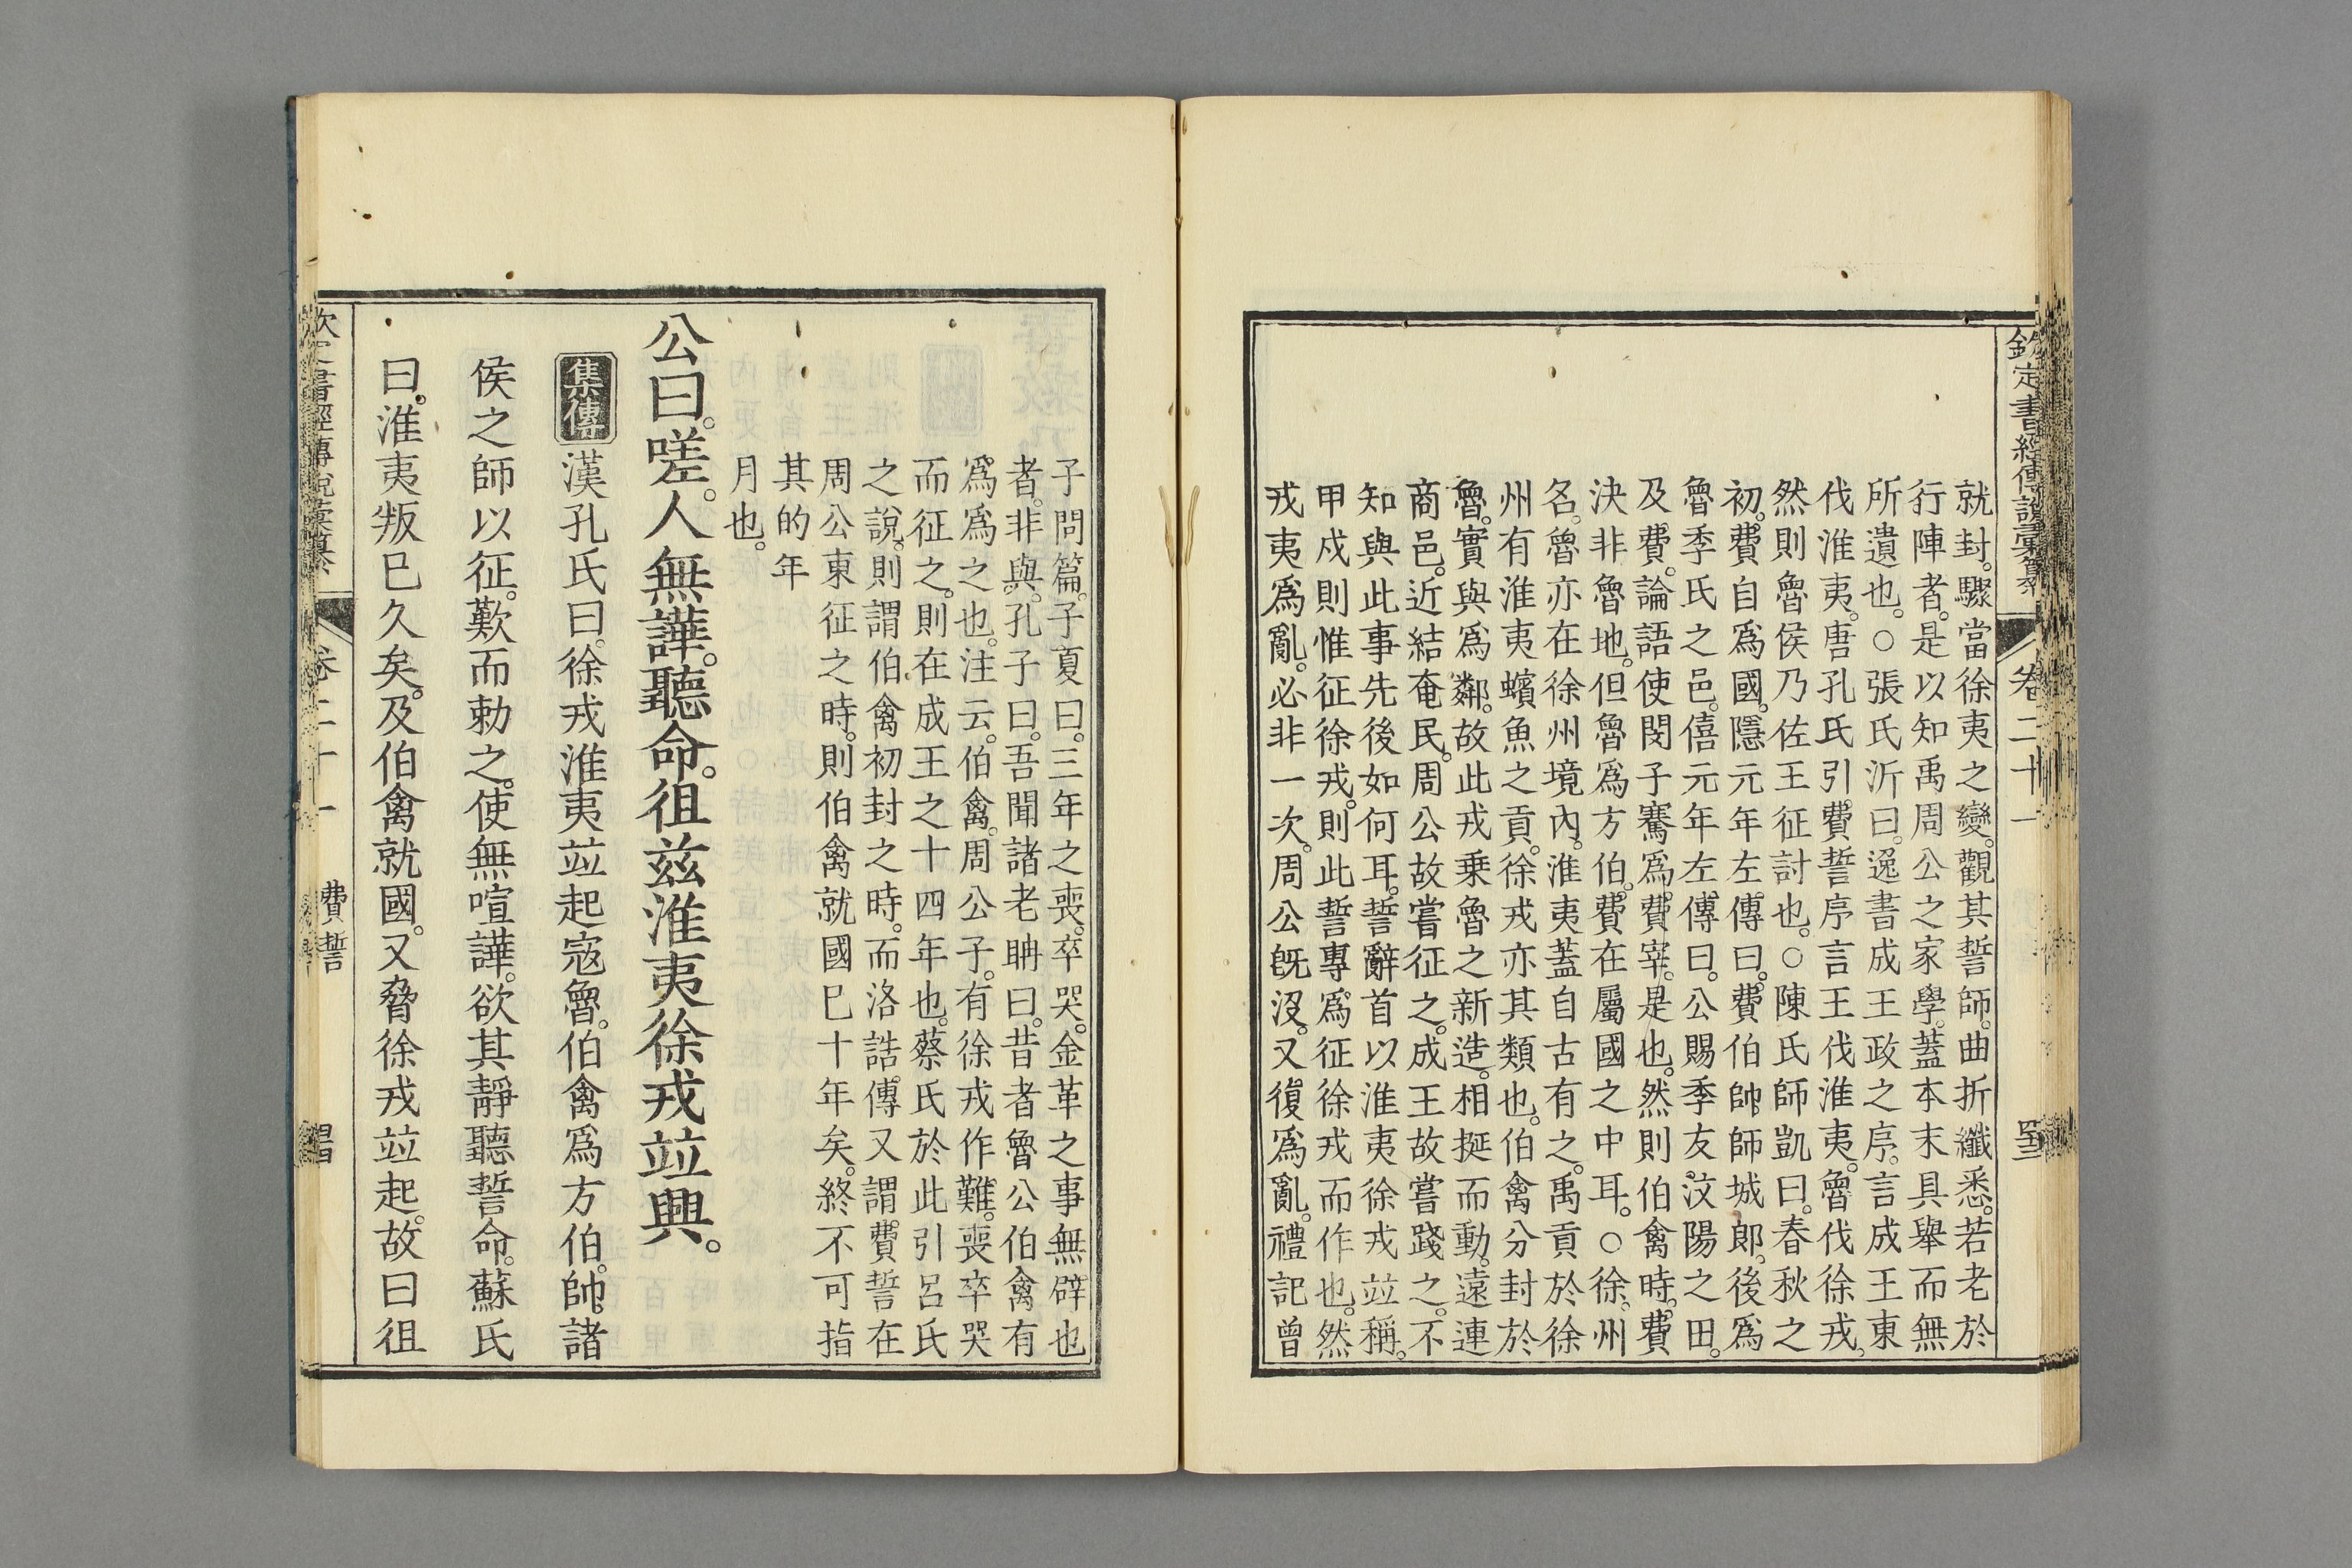 欽定書經傳說彙纂 卷二十一
就封。驟當徐夷之變。觀其誓師。曲折纖悉。若老於
行陣者。是以知禹周公之家學。蓋本末具舉而無
所遺也。○張氏沂曰。逸書成王政之序。言成王東
伐淮夷。唐孔氏引費誓序言王伐淮夷。魯伐徐戎。
然則魯侯乃佐王征討也。○陳氏師凱曰。春秋之
初。費自為國。隱元年左傳曰。費伯帥師城郎。後為
魯季氏之邑。僖元年左傳曰。公賜季友汶陽之田。
及費。論語使閔子騫為。費宰。是也。然則伯禽時。費
決非魯地。但魯為方伯。費在屬國之中耳。○徐州
名。魯亦在徐州境內。淮夷蓋自古有之。禹貢於徐
州有淮夷蠙魚之貢。徐戎亦其類也。伯禽分封於
魯。實與為鄰。故此戎乗魯之新造。相挻而動。遠連
商邑。近結奄民。周公故嘗征之。成王故嘗踐之。不
知與此事先後如何耳。誓辭首以淮夷徐戎竝稱。
甲戍則惟征徐戎。則此誓專為征徐戎而作也。然
戎夷為亂。必非一次。周公旣沒。又復為亂。禮記曾
子問篇。子夏曰。三年之喪。卒哭。金革之事無辟也
者。非與。孔子曰。吾聞諸老聃曰。昔者魯公伯禽有
為為之也。注云。伯禽。周公子。有徐戎作難。喪卒哭
而征之。則在成王之十四年也。蔡氏於此引呂氏
之說。則謂伯禽初封之時。而洛誥傳又謂費誓在
周公東征之時。則伯禽就國已十年矣。終不可指
其的年
月也。
公曰。嗟。人無譁。聽命。徂茲淮夷徐戎竝興。
集傳 漢孔氏曰。徐戎淮夷竝起寇魯。伯禽為方伯。帥諸
侯之師以征。歎而勅之。使無喧譁。欲其靜聽誓命。蘇氏
曰。淮夷叛已久矣。及伯禽就國。又脅徐戎竝起。故曰徂
書經傳說彙纂 卷二十一 費誓